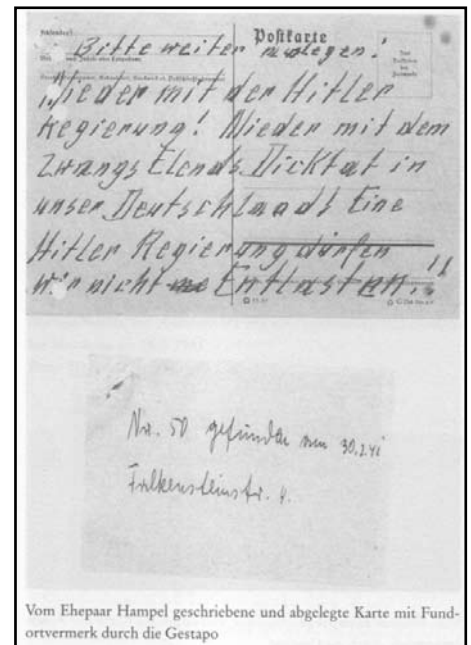 Postkarte
Bitte weiter auslegen!
„Nieder mit der Hitler
Regierung! Nieder mit dem
Zwangs Elends Dicktat in
unser Deutschlaadt Eine
Hitler Regierung dürfen
wir nicht Entlasten."
Nr. 50 gefunden am
Falkensteinstr. 4.
Vom Ehepaar Hampel geschriebene und abgelegte Karte mit Fund-
ortvermerk durch die Gestapo